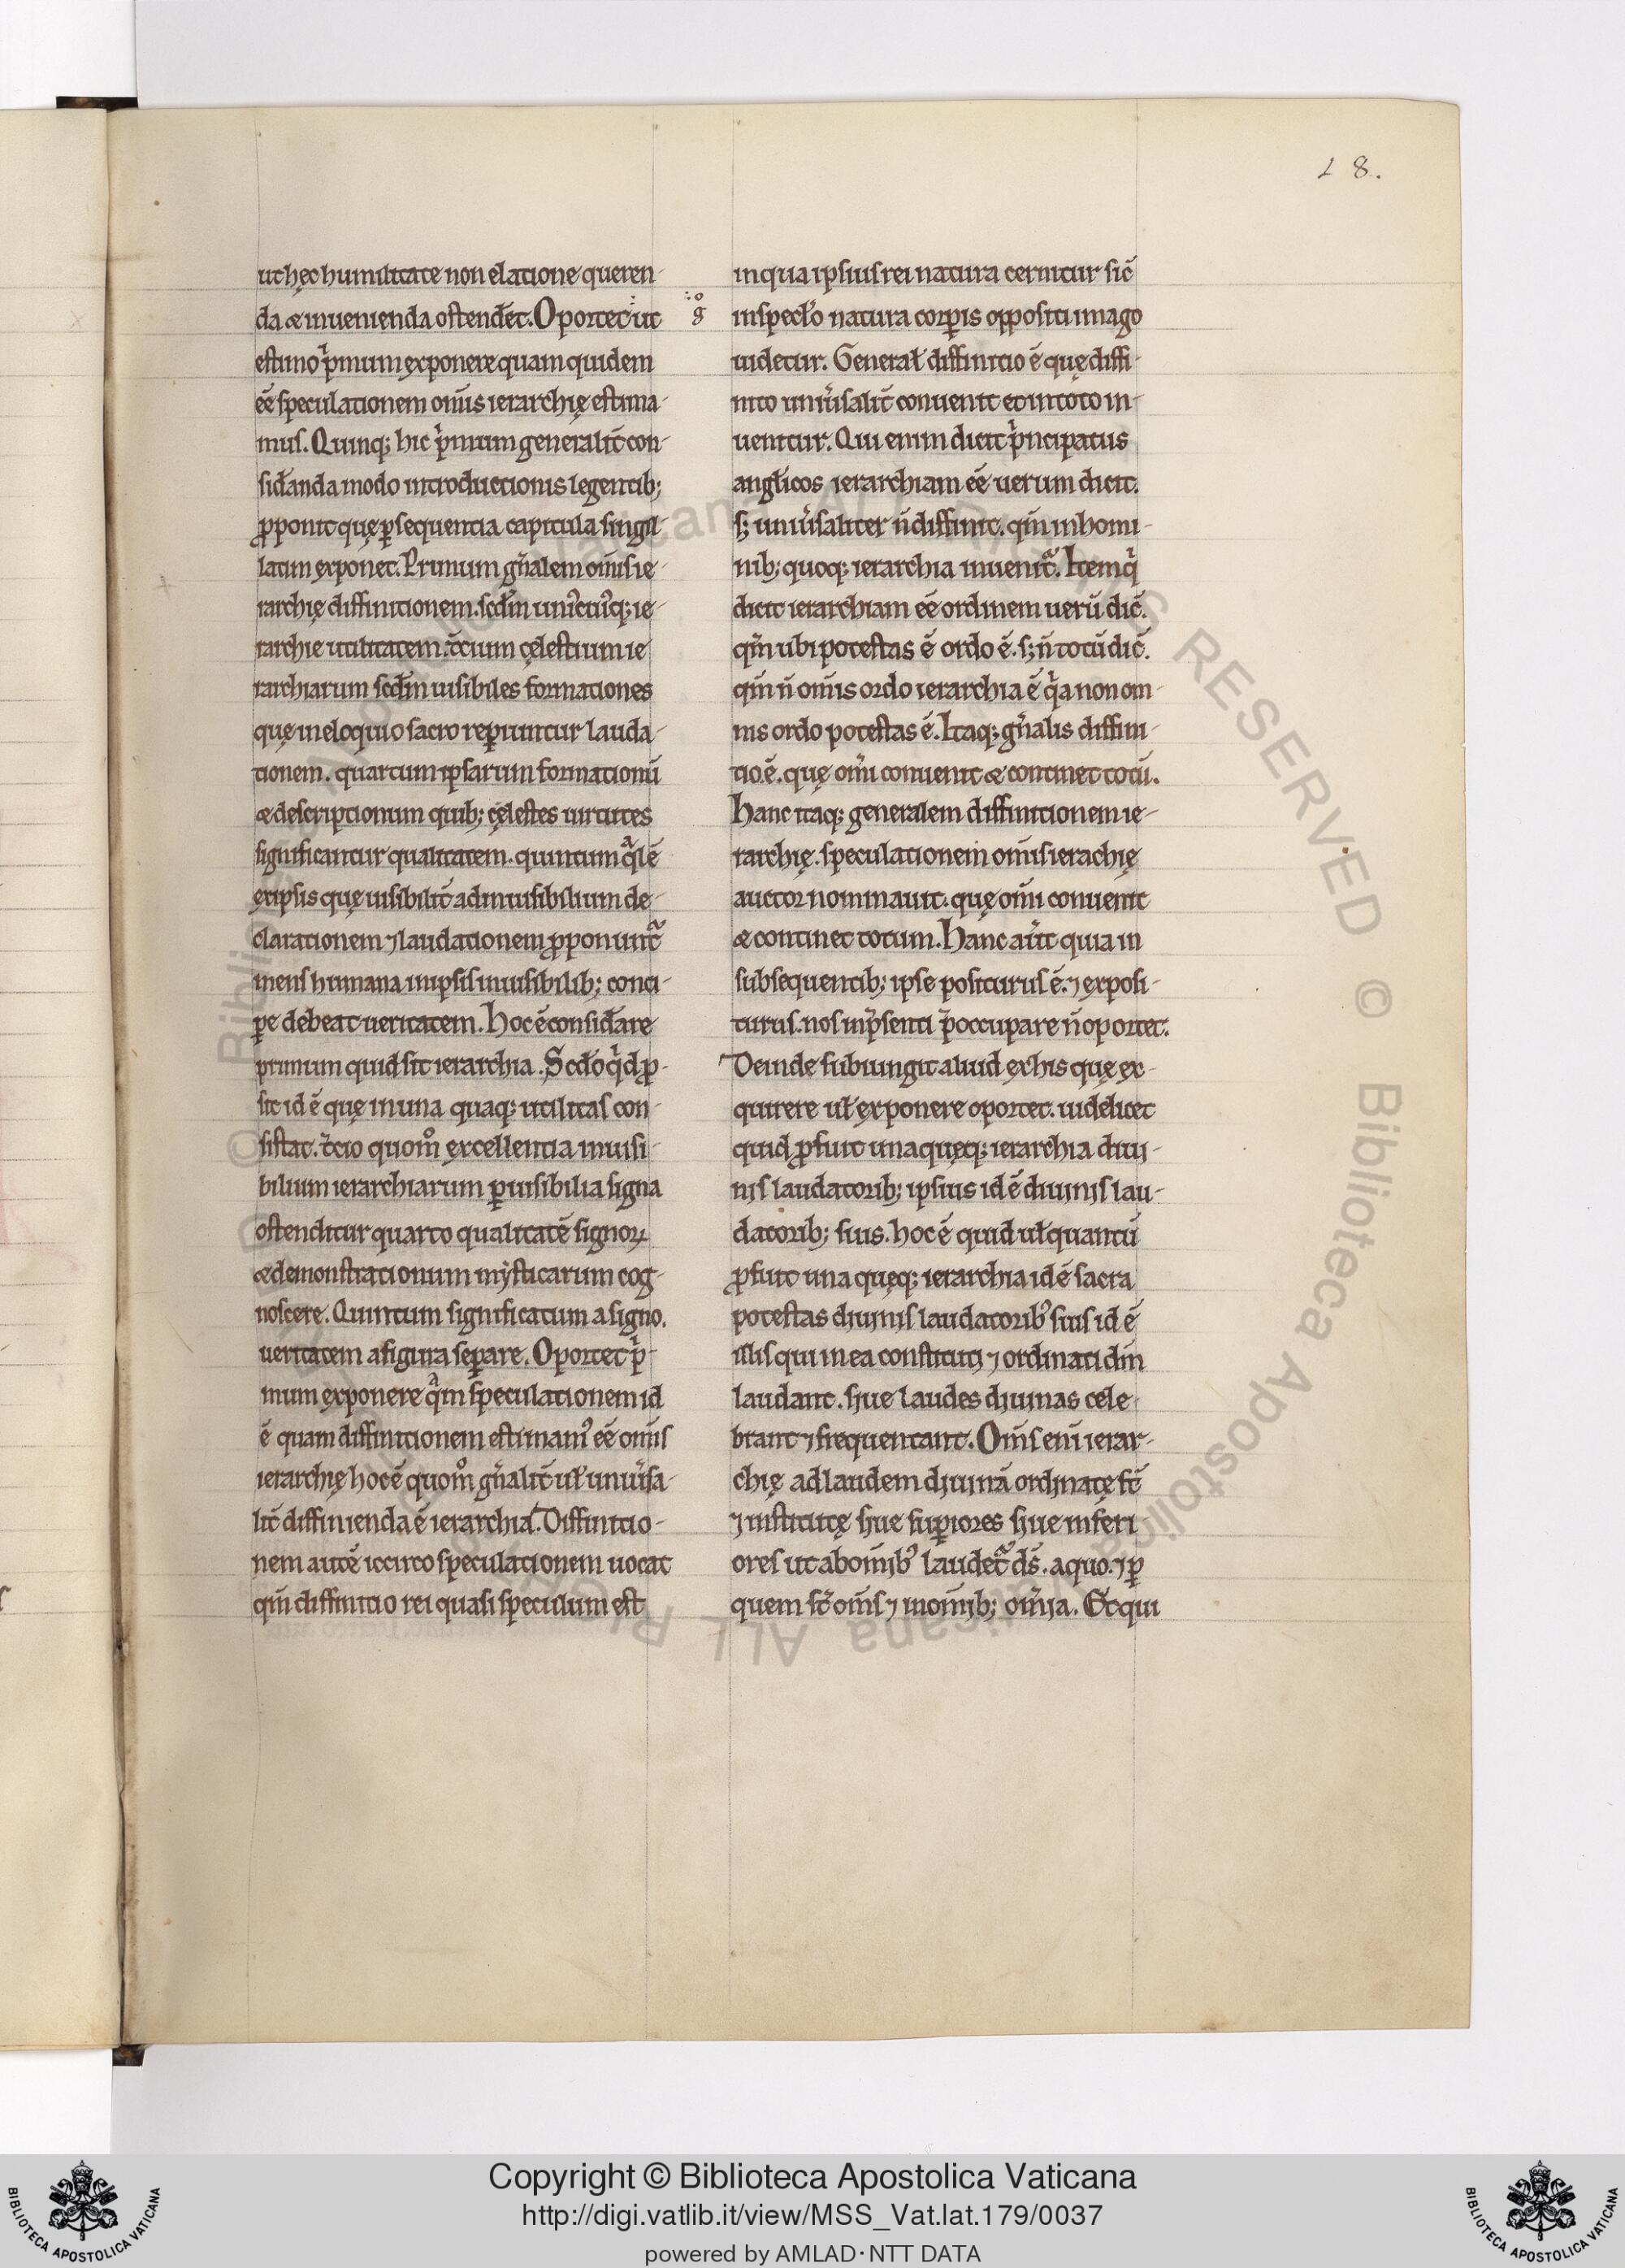 18.
ut hęc humilitate non elatione queren-
da & inuenienda ostend̄et. Oportet ut
estimo pͥmum exponere quam quidem
eē speculationem om̄is ierarchię estima-
mus. Quinq; hic pͥmum generalit̄ con-
sid̄anda modo introductionis legentib;
ꝓponit quę ꝑ sequentia capitula singil-
latim exponet. Primum gn̄alem om̄is ie-
rarchię diffinitionem. scd̄m uniꝰcuiꝰq; ie-
rarchie utilitatem. t̄cium cęlestium ie
rarchiarum scd̄m uisibiles formationes
quę in eloquio sacro reꝑiuntur lauda-
tionem. quartum ipsarum formationū
& descriptionum quib; cęlestes uirtutes
significantur qualitatem. quintum qͣlē
ex ipsis quę uisibilit̄ ad inuisibilium de-
clarationem ⁊ laudationem ꝓponunt̄
mens humana in ipsis inuisibilib; conci-
ꝑe debeat ueritatem. Hoc ē consid̄are
primum quid sit ierarchia. Scd̄o qͥd ꝓ-
sit id ē quę in una quaq; utilitas con-
sistat. t̄cio quom̊ excellentia inuisi-
bilium ierarchiarum ꝑ uisibilia signa
ostenditur quarto qualitatē signoꝝ
& demonstrationum mysticarum cog-
noscere. Quintum significatum a signo.
ueritatem a figura seꝑare. Oportet pͥ-
mum exponere qͣm speculationem id
ē quam diffinitionem estimamꝰ eē om̄is
ierarchię hoc ē quom̊ gn̄alit̄ uł uniu̅sa-
lit̄ diffinienda ē ierarchia. Diffinitio-
nem autē iccirco speculationem uocat
qm̄ diffinitio rei quasi speculum est
g̊
in qua ipsius rei natura cernitur sic̄
in speclo̅ natura corꝑis oppositi imago
uidetur. Generał diffinitio ē quę diffi-
nito uniu̅salit̄ conuenit et in toto in-
uenitur. Qui enim dicit pͥncipatus
angłicos ierarchiam eē uerum dicit.
s; uniu̅saliter n̄ diffinit. qm̄ in homi-
nib; quoq; ierarchia inuenit̄. Item qͥ
dicit ierarchiam eē ordinem uerū dic̄.
qm̄ ubi potestas ē ordo ē. s; n̄ totū dic̄.
qm̄ n̄ om̄is ordo ierarchia ē qͥa non om-
nis ordo potestas ē. Itaq; gn̄alis diffini-
tio ē. quę om̄i conuenit & continet totū.
Hanc itaq; generalem diffinitionem ie-
rarchię. speculationem om̄is ierachię
auctor nominauit. quę om̄i conuenit
& continet totum. Hanc aūt quia in
subsequentib; ipse positurus ē. ⁊ exposi-
turus. nos in p̄senti p̄occupare n̄ oportet.
Deinde subiungit aliud ex his quę ex-
quirere uł exponere oportet. uidelicet
quid ꝓfuit unaquęq; ierarchia diui-
nis laudatorib; ipsius id ē diuinis lau-
datorib; suis. hoc ē quid uł quantū
ꝓfuit una quęq; ierarchia id ē sacra
potestas diuinis laudatoribꝰ suis id ē
illis qui in ea constituti ⁊ ordinati dm̄
laudant. siue laudes diuinas cele-
brant ⁊ frequentant. Om̄s eni̅ ierar-
chię ad laudem diuinā ordinatę st̄
⁊ institutę siue suꝑiores siue inferi-
ores ut ab om̄ibꝰ laudet̄ ds̄. a quo. ⁊ ꝑ
quem st̄ om̄s ⁊ in om̄ib; om̄ia. Et qui
© Biblioteca Apostolica Vaticana ALL RIGHTS RESERVED © Biblioteca Apostolica Vaticana ALL RIGHTS RESERVED
Copyright © Biblioteca Apostolica Vaticana
http://digi.vatlib.it/view/MSS_Vat.lat.179/0037
powered by AMLAD·NTT DATA
BIBLIOTECA APOSTOLICA VATICANA
BIBLIOTECA APOSTOLICA VATICANA